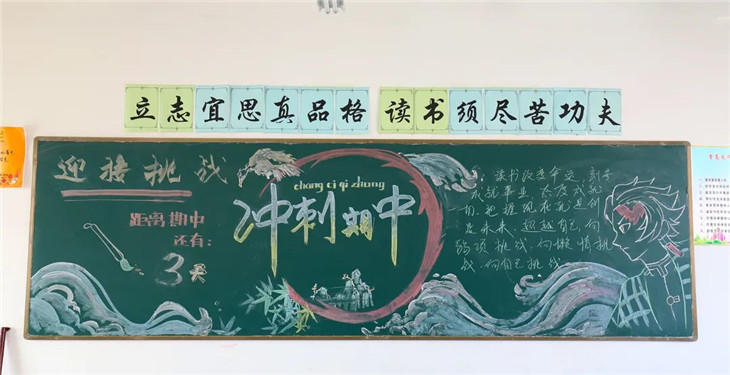 立志宜思真品格 读书须尽苦功夫
迎接挑战
距离期中
还有：
3天
chong ci qi zhong
冲刺期中
读书改变命运，刻苦
成就事业，态度成就
把握现在就是创
造未来，超越自己，向
弱项挑战，向懒惰挑
战，向自己挑战